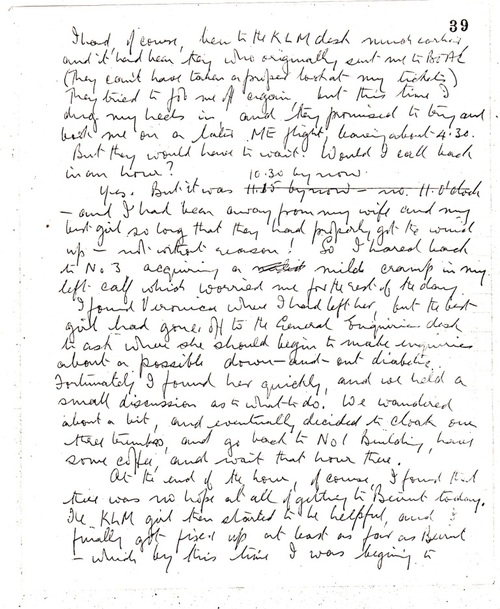 39
I had, of course, been to the KLM desk much earlier
and it had been they who originally sent me to BOAC
(They can't have taken a proper look at my tickets)
They tried to fob me off again, but this time I
dug my heels in, and they promised to try and
book me on a later ME flight, leaving about 4.30.
But they would have to wait. Would I call back
in an hour? 10.30 by now.
Yes. But it was 11.15 by now – no. 11 o'clock
– and I had been away from my wife and my
best girl so long that they had properly got the wind
up – not without reason! So I hared back
to No 3 acquiring a mild cramp in my
left calf which worried me for the rest of the day
I found Veronica where I had left her, but the best
girl had gone off to the General Enquiries desk
to ask when she should begin to make enquiries
about a possible down-and-out diabetic.
Fortunately I found her quickly, and we held a
small discussion as to what to do. We wandered
about a bit, and eventually decided to cloak our
three and go back to No 1 Building, have
some coffee, and wait that hour there.
At the end of the hour, of course, I found that
there was no hope at all of getting to Beirut today.
The KLM girl then started to be helpful, and I
finally got fixed up at least as far as Beirut
– which by this time I was beginning to